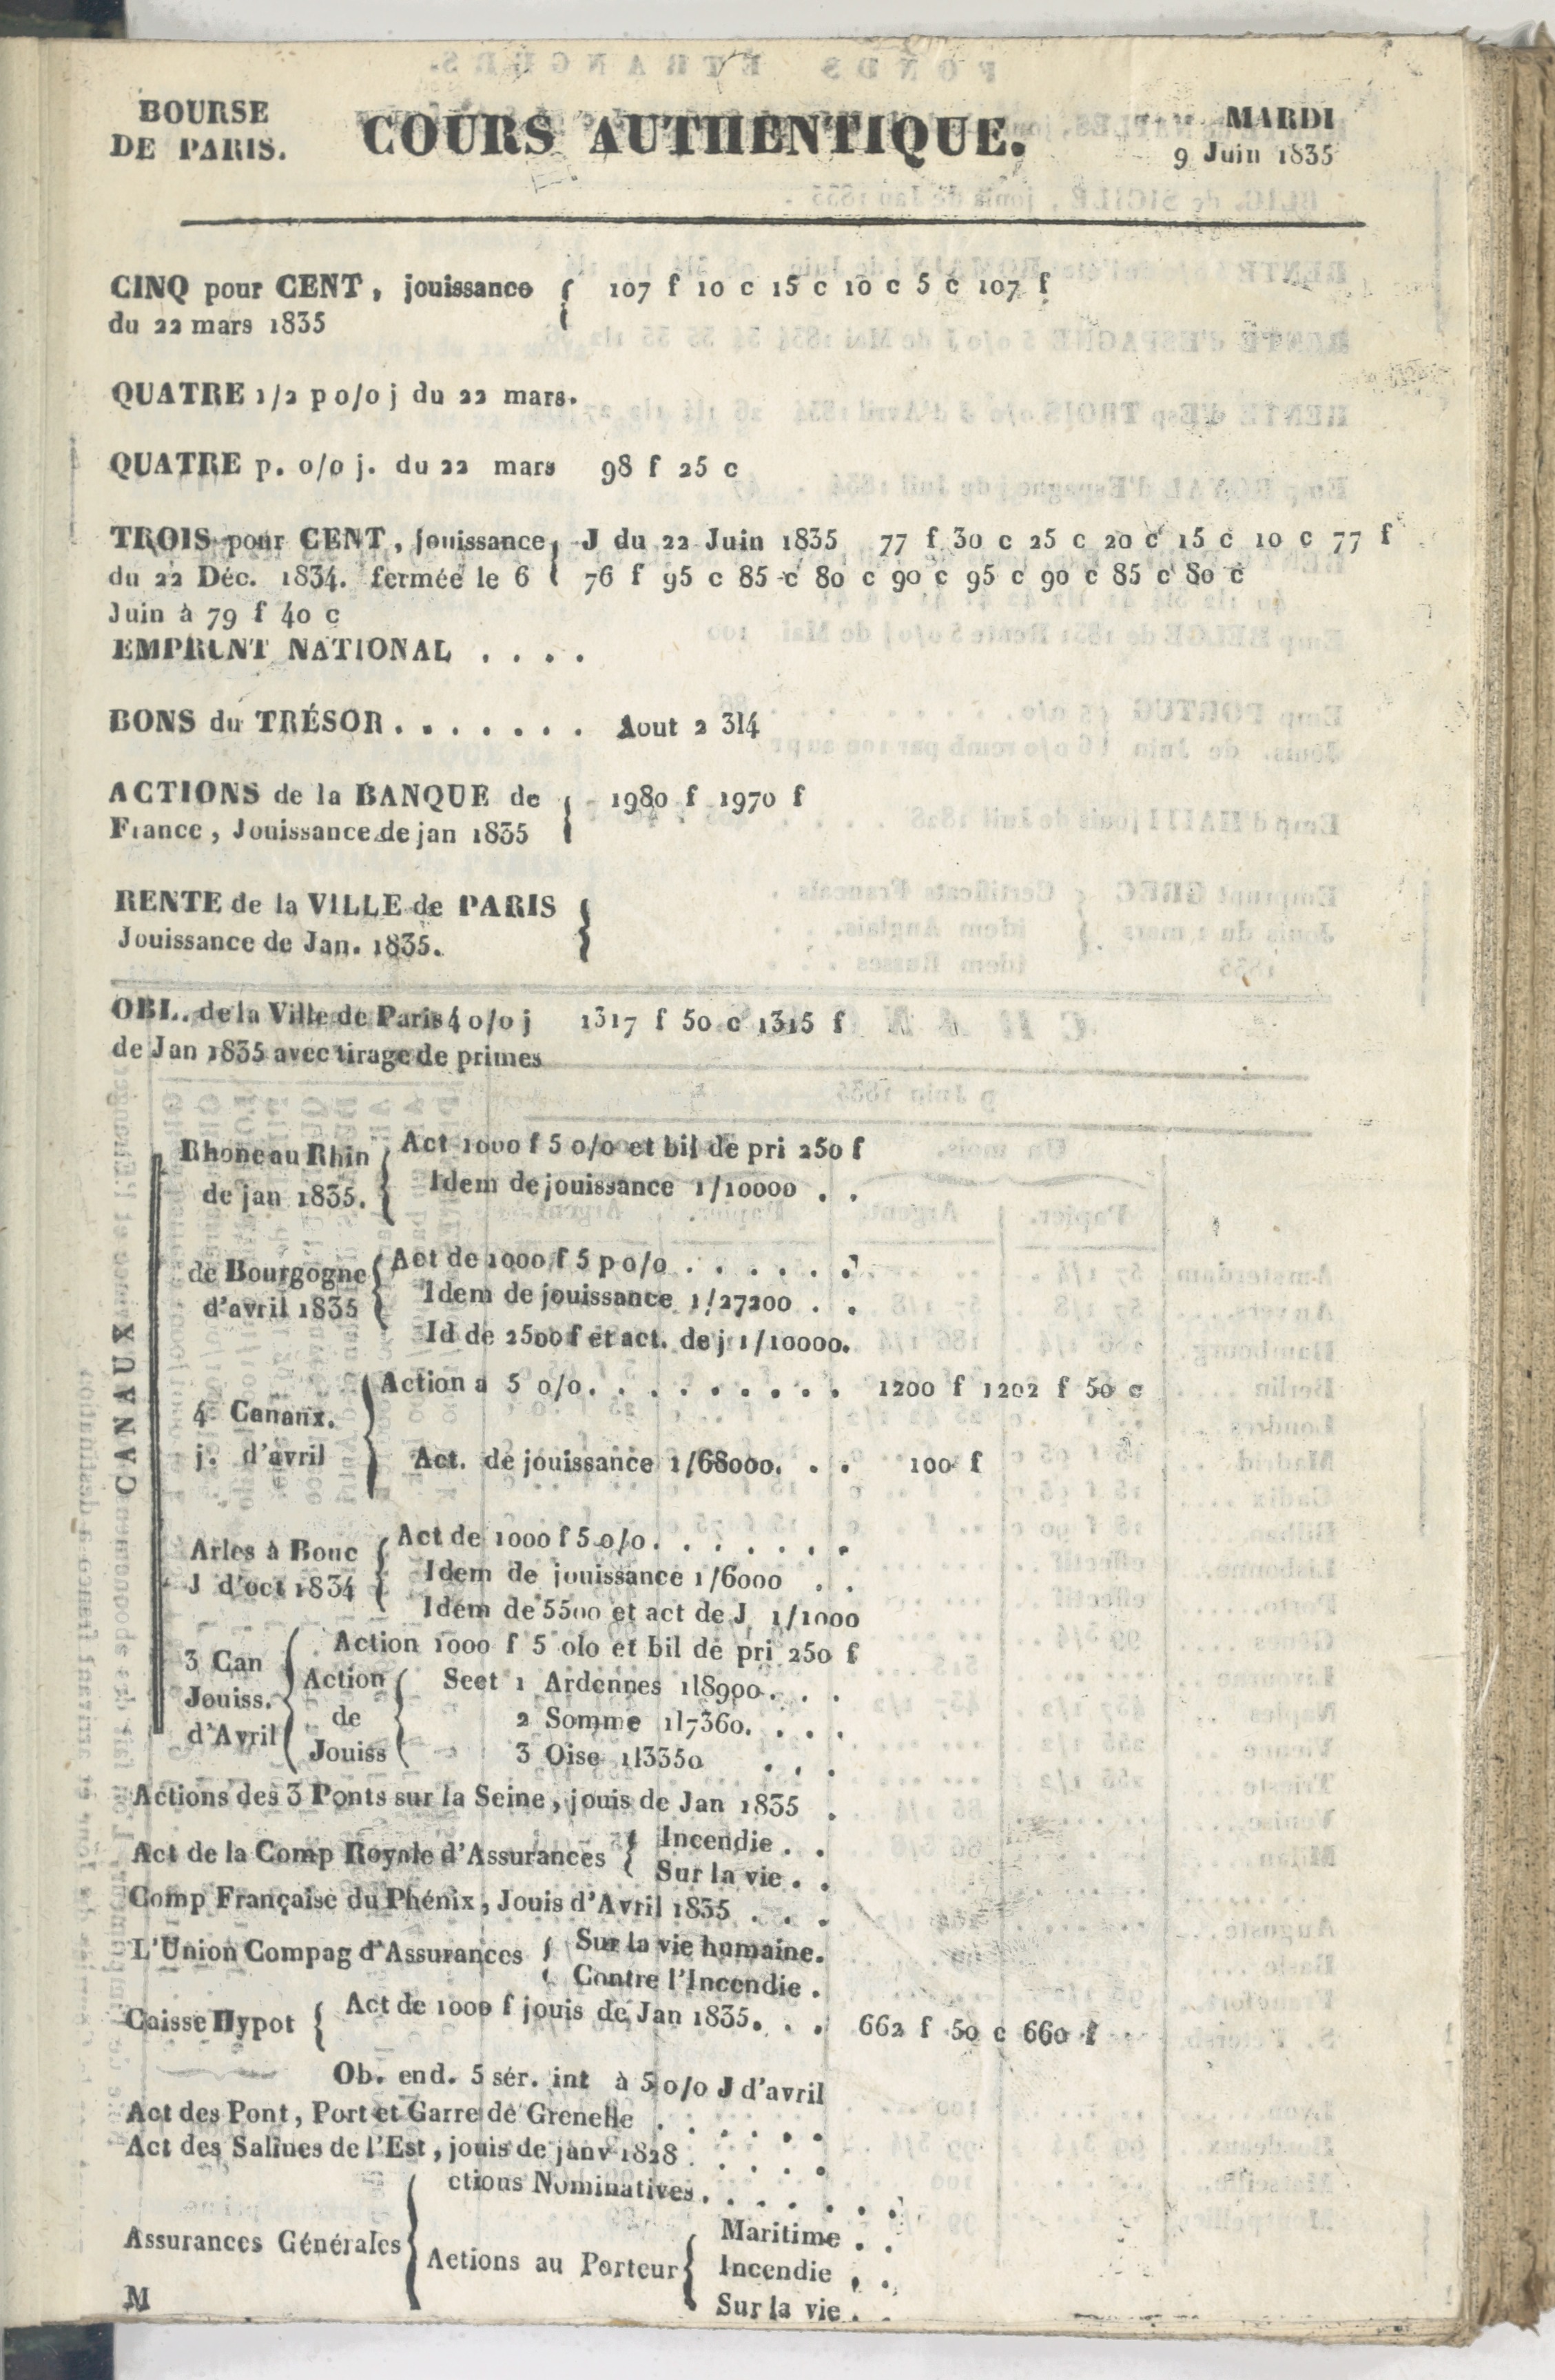 BOURSE
DE PARIS.
COURS AUTHENTIQUE.
MARDI
9 Juin 1835
CINQ pour CENT, jouissance { 107 f 10 c 15 c 10 c 5 c 107 f
du 22 mars 1835
QUATRE 1/2 p o/o j du 22 mars.
QUATRE p. o/o j. du 22 mars 98 f 25 c
TROIS pour CENT, jouissance { J du 22 Juin 1835 77 f 30 c 25 c 20 c 15 c 10 c 77 f
du 22 Déc. 1834. fermée le 6 76 f 95 c 85 c 80 c 90 c 95 c 90 c 85 c 80 c
Juin à 79 f 40 c
EMPRUNT NATIONAL . . . .
BONS du TRÉSOR. . . . . . . Aout 2 3l4
ACTIONS de la BANQUE de { 1980 f 1970 f
France, Jouissance de jan 1835
RENTE de la VILLE de PARIS }
Jouissance de Jan. 1835.
OBL. de la Ville de Paris 4 o/o j 1317 f 50 c 1315 f
de Jan 1835 avec tirage de primes
CANAUX
Rhone au Rhin { Act 1000 f 5 o/o et bil de pri 250 f
de jan 1835. Idem de jouissance 1/10000 . .
de Bourgogne { Act de 1000 f 5 p o/o . . . . . .
d'avril 1835 Idem de jouissance 1/27200 . .
Id de 2500 f et act. de j 1/10000.
4 Canaux. { Action a 5 o/o. . . . . . . . . 1200 f 1202 f 50 c
j. d'avril Act. de jouissance 1/68000. . . 100 f
Arles à Bouc { Act de 1000 f 5 o/o. . . . . . .
J d'oct 1834 Idem de jouissance 1/6000 . .
Idem de 5500 et act de J 1/1000
3 Can { Action 1000 f 5 olo et bil de pri 250 f
Jouiss. Action { Sect 1 Ardennes 1l8900. . .
d'Avril de 2 Somme 1l7360. . . .
Jouiss 3 Oise 1l3350 . . .
Actions des 3 Ponts sur la Seine, jouis de Jan 1835 .
Act de la Comp Royale d'Assurances { Incendie . .
Sur la vie . .
Comp Française du Phénix, Jouis d'Avril 1835 . . .
L'Union Compag d'Assurances { Sur la vie humaine.
Contre l'Incendie .
Caisse Hypot { Act de 1000 f jouis de Jan 1835. . . 662 f 50 c 660 f
Ob. end. 5 sér. int à 5 o/o J d'avril
Act des Pont, Port et Garre de Grenelle . . . . .
Act des Salines de l'Est, jouis de janv 1828 . . . . .
Assurances Générales { ctions Nominatives. . . . . . .
Actions au Porteur { Maritime . .
Incendie . .
Sur la vie . .
M